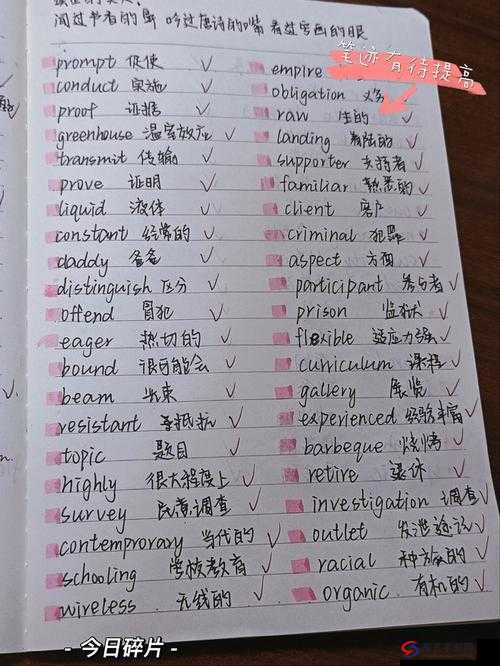 闻过书香的鼻 吟过唐诗的嘴 看过字画的眼
笔迹有待提高
prompt 促使
conduct 实施
proof 证据
greenhouse 温室效应
transmit 传输
prove 证明
liquid 液体
constant 经常的
daddy 爸爸
distinguish 区分
offend 冒犯
eager 热切的
bound 很可能会
beam 光束
resistant 有抵抗
topic 题目
highly 很大程度上
survey 民意调查
contemprorary 当代的
schooling 学校教育
wireless 无线的
empire
obligation 义务
raw 生的
landing 着陆的
supporter 支持者
familiar 熟悉的
client 客户
criminal 犯罪
aspect 方面
participant 参与者
prison 监狱
flexible 适应力强
curriculum 课程
gallery 展览
experienced 经验丰富
barbeque 烧烤
retire 退休
investigation 调查
outlet 发泄途径
racial 种族的
organic 有机的
- 今日碎片 -